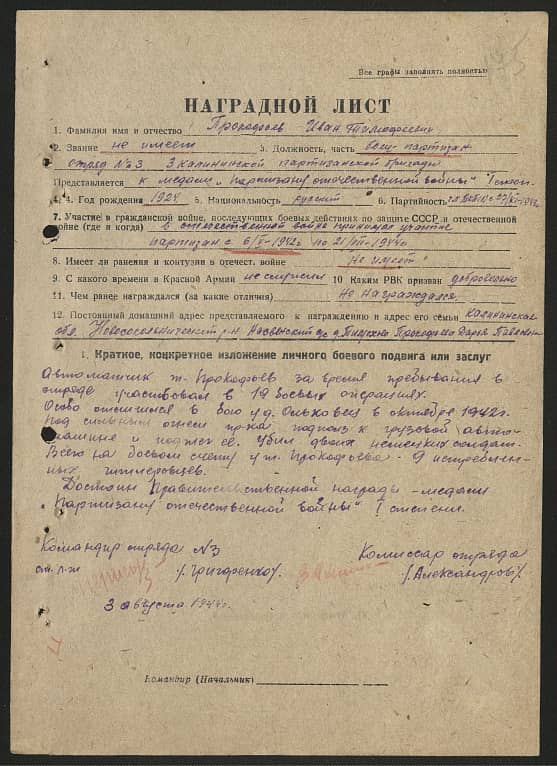 Все графы заполнять полностью
НАГРАДНОЙ ЛИСТ
1. Фамилия имя и отчество Прокофьев Иван Тимофеевич
2. Звание не имеет 3. Должность, часть боец партизан
отряд №3 3 Калининской партизанской бригады
Представляется к медали „Партизану отечественной войны" I степ.
4. Год рождения 1924 5. Национальность русский 6. Партийность
7. Участие в гражданской войне, последующих боевых действиях по защите СССР и отечественной
войне (где и когда) в отечественной войне принимал участие
партизан с 6/X-1942г по 21/VII-1944г
8. Имеет ли ранения и контузии в отечест. войне не имеет
9. С какого времени в Красной Армии не служил 10 Каким РВК призван добровольно
11. Чем ранее награждался (за какие отличия) Не награждался.
12. Постоянный домашний адрес представляемого к награждению и адрес его семьи Калининская
обл. Новосокольнический р-н Насвинский с/с д. Прокофьева Дарья
I. Краткое, конкретное изложение личного боевого подвига или заслуг
Автоматчик т. Прокофьев за время пребывания в
отряде участвовал в 19 боевых операциях.
Особо отличился в бою у д. Ольховец в октябре 1942г.
Под сильным огнем пр-ка подполз к грузовой авто-
машине и поджег её. Убил двоих немецких солдат.
Всего на боевом счету у т. Прокофьева - 9 истреблен-
ных гитлеровцев.
Достоин Правительственной награды - медали
„Партизану отечественной войны" I степени.
Командир отряда №3 Комиссар отряда
ст. л-т /.Григоренко/. /.Александров/.
3 августа 1944г.
Командир (Начальник)